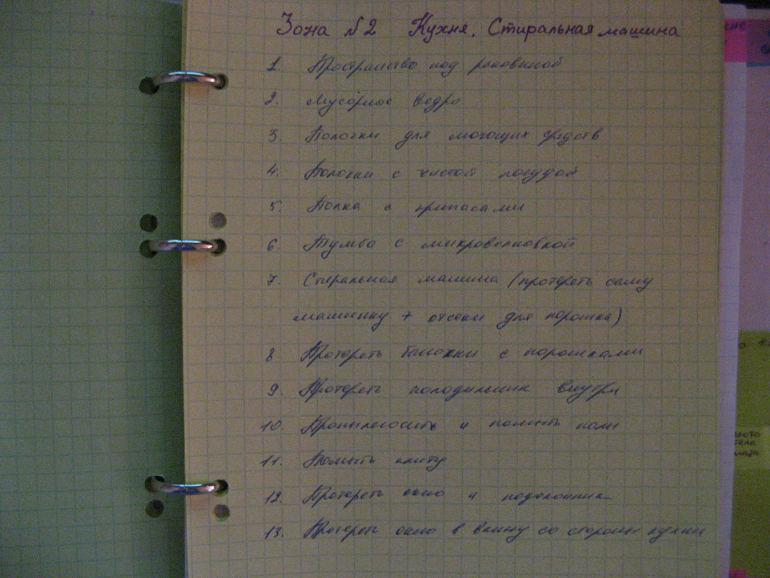 Зона №2 Кухня. Стиральная машина
1. Пространство под раковиной
2. Мусорное ведро
3. Полочки для моющих средств
4. Полочки с чистой посудой
5. Полка с припасами
6. Тумба с микроволновкой
7. Стиральная машина (протереть саму
машинку + отсеки для порошка)
8. Протереть баночки с порошками
9. Протереть холодильник внутри
10. Пропылесосить и помыть полы
11. Помыть плиту
12. Протереть окно и подоконник
13. Протереть окно в ванну со стороны кухни